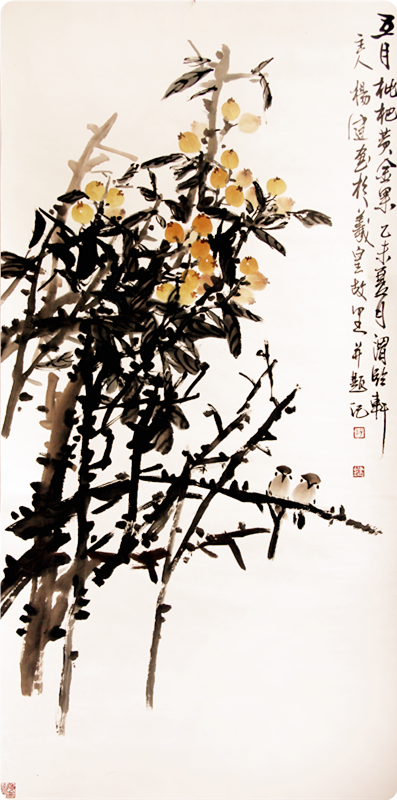 五月枇杷黄金果乙未夏月渭
轩
主人杨画于羲皇故里并题记